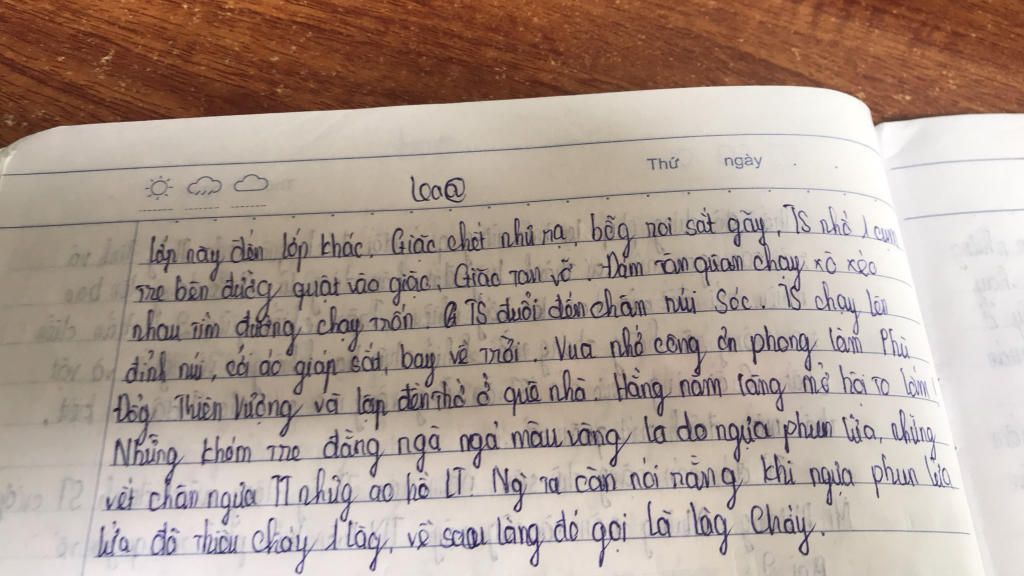 Thứ ngày
Loa②
lớp này đến lớp khác. Giặc chết như rạ, bỗg roi sắt gãy. TS nhổ 1 cụm
tre bên đườg quật vào giặc. Giặc tan vỡ. Đám tàn quân chạy xô xéo
nhau tìm đườg chạy trốn. TS đuổi đến chân núi Sóc. TS chạy lên
đỉnh núi, cởi áo giáp sắt, bay về trời. Vua nhớ công ơn phong làm Phù
Đổg Thiên Vượng và lập đền thờ ở quê nhà. Hằng năm làng mở hội to lắm!
Những khóm tre đằng ngà ngả màu vàng là do ngựa phun lửa, những
vết chân ngựa TT nhữg ao hồ LT. Ng ta còn nói rằng khi ngựa phun lửa
lửa đã thiêu cháy 1 làg, về sau làng đó gọi là làg Cháy.